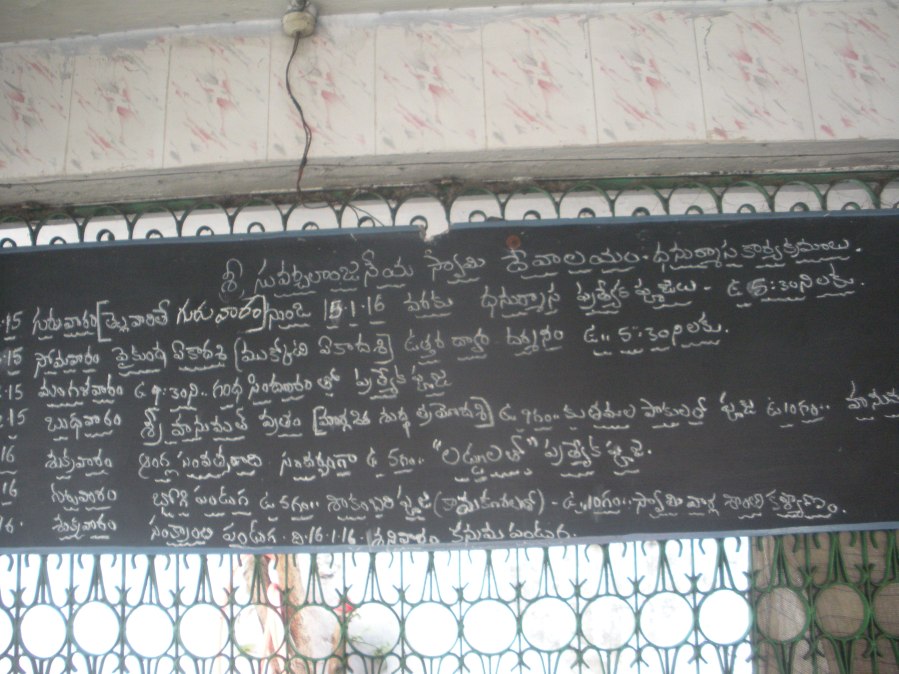 శ్రీ సువర్చలాంజనేయ స్వామి దేవాలయం. ధనుర్మాస కార్యక్రమంబులు.
.15 గురువారం [తెల్లవారితే గురువారం] నుండి 15-1-16 వరకు ధనుర్మాస ప్రత్యేక పూజలు - ఉ 5:30నిలకు.
.15 సోమవారం వైకుంఠ ఏకాదశి [ముక్కోటి ఏకాదశి] ఉత్తర ద్వార దర్శనం ఉ.. 5:30నిలకు.
.15 మంగళవారం ఉ 9:30ని.. గంధ సింధూరం తో ప్రత్యేక పూజ
.15 బుధవారం శ్రీ హనుమత్ వ్రతం [మార్గశిర శుద్ధ త్రయోదశి] ఉ. 9గం.. పూజ ఉ 10గం..
16 శుక్రవారం ఆంగ్ల సంవత్సరాది సందర్భంగా ఉ 9గం.. "లడ్డూలతో" ప్రత్యేక పూజ.
16 గురువారం భోగి పండుగ ఉ 9గం.. శాకంబరి పూజ - ఉ..10గం.. స్వామి వార్ల శాంతి కళ్యాణం.
16. శుక్రవారం సంక్రాంతి పండుగ. ది.16-1-16 శనివారం కనుమ పండుగ.